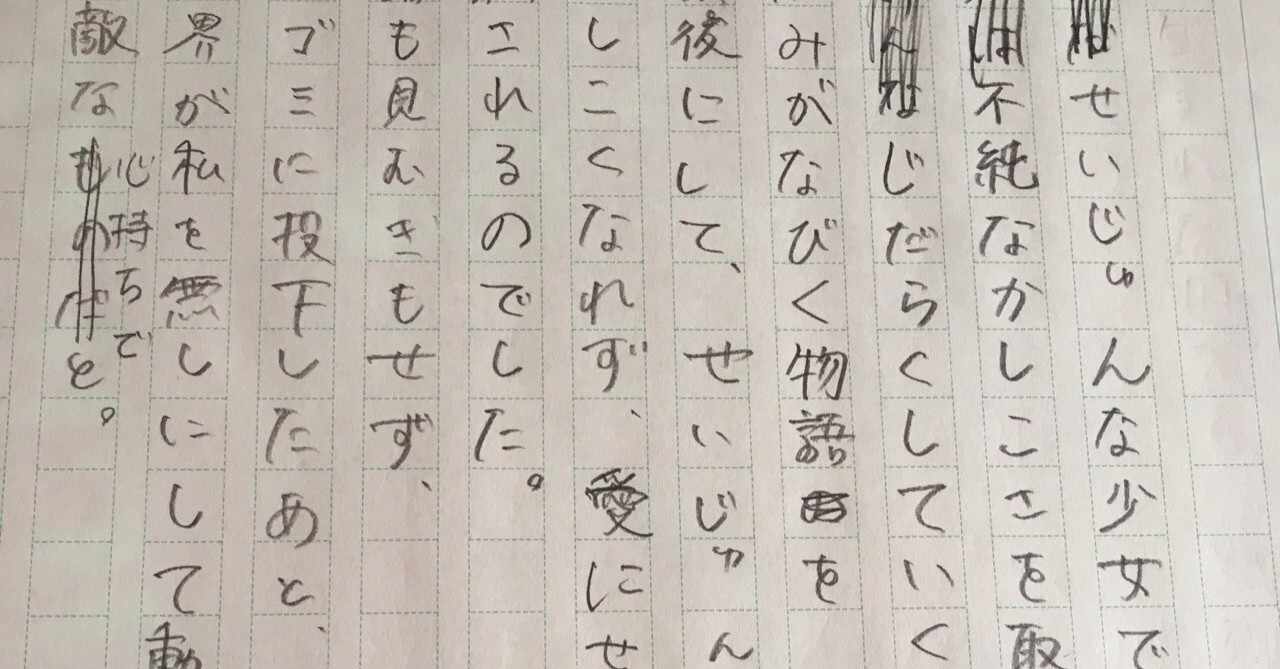 せいじゅんな少女で
不純なかしこさを取
じだらくしていく
みがなびく物語を
後にして、せいじゅん
しこくなれず、愛にせ
されるのでした。
も見むきもせず、
ゴミに投下しためと、
界が私を無しにして動
敵な心持ちでと。